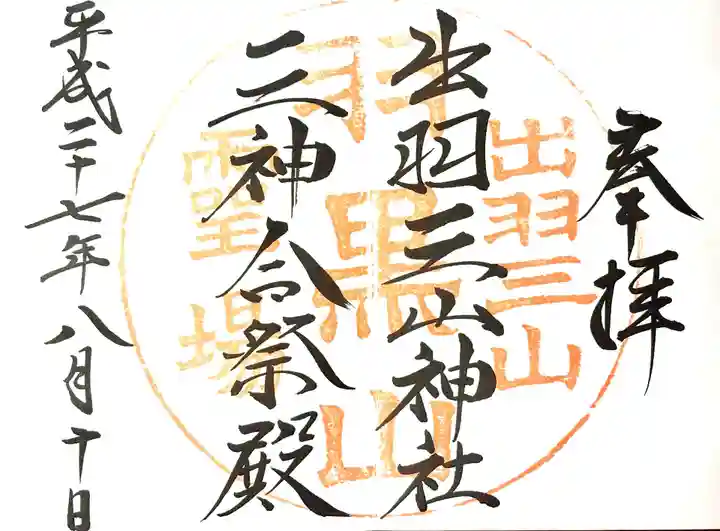 奉拝
出羽三山
出羽三山神社
羽黒山
三神合祭殿
霊場
平成二十七年八月十日